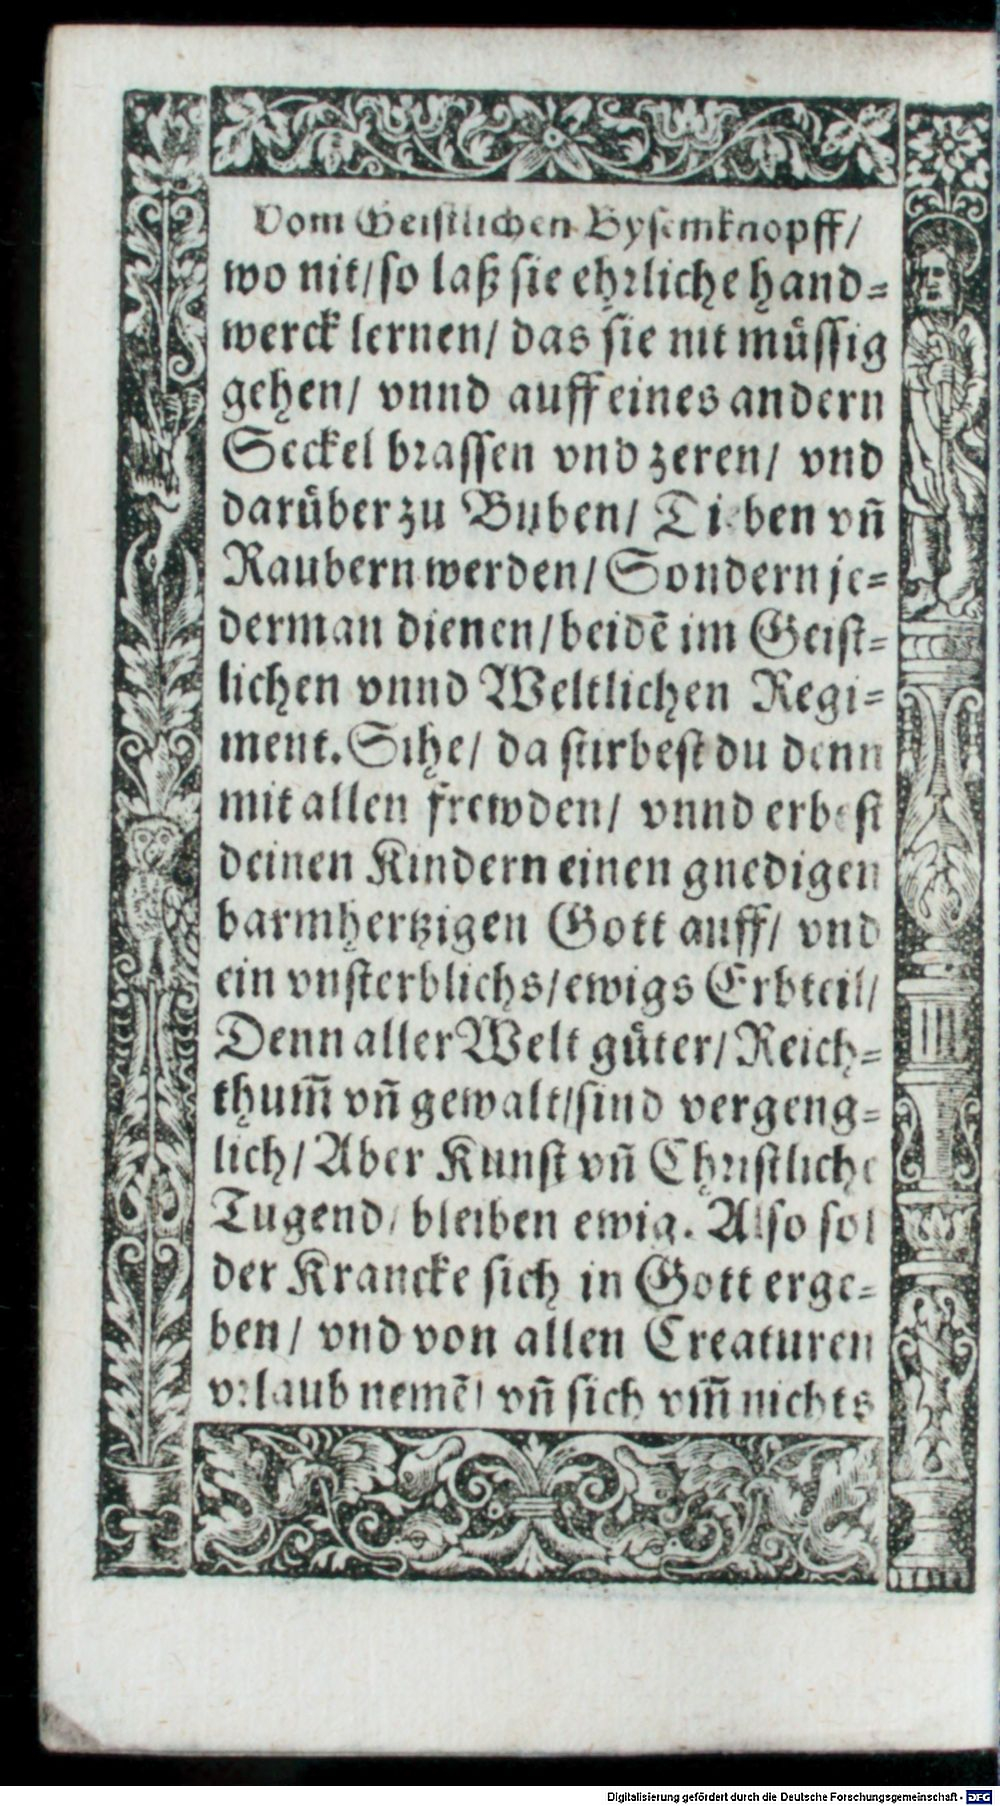 Vom Geistlichen Bysemknopff/
wo nit/so laß sie ehrliche hand=
werck lernen/ das sie nit müssig
gehen/ vnnd auff eines andern
Seckel brassen vnd zeren/ vnd
darüber zu Buben/ Tieben vñ
Raubern werden/ Sondern je=
derman dienen/beidē im Geist=
lichen vnnd Weltlichen Regi=
ment. Sihe/ da stirbest du denn
mit allen frewden/ vnnd erbest
deinen Kindern einen gnedigen
barmhertzigen Gott auff/ vnd
ein vnsterblichs/ewigs Erbteil/
Denn aller Welt güter/ Reich=
thum̄ vñ gewalt/sind vergeng=
lich/ Aber Kunst vñ Christliche
Tugend/ bleiben ewig. Also sol
der Krancke sich in Gott erge=
ben/ vnd von allen Creaturen
vrlaub nemē/ vñ sich vm̄ nichts
Digitalisierung gefördert durch die Deutsche Forschungsgemeinschaft - DFG